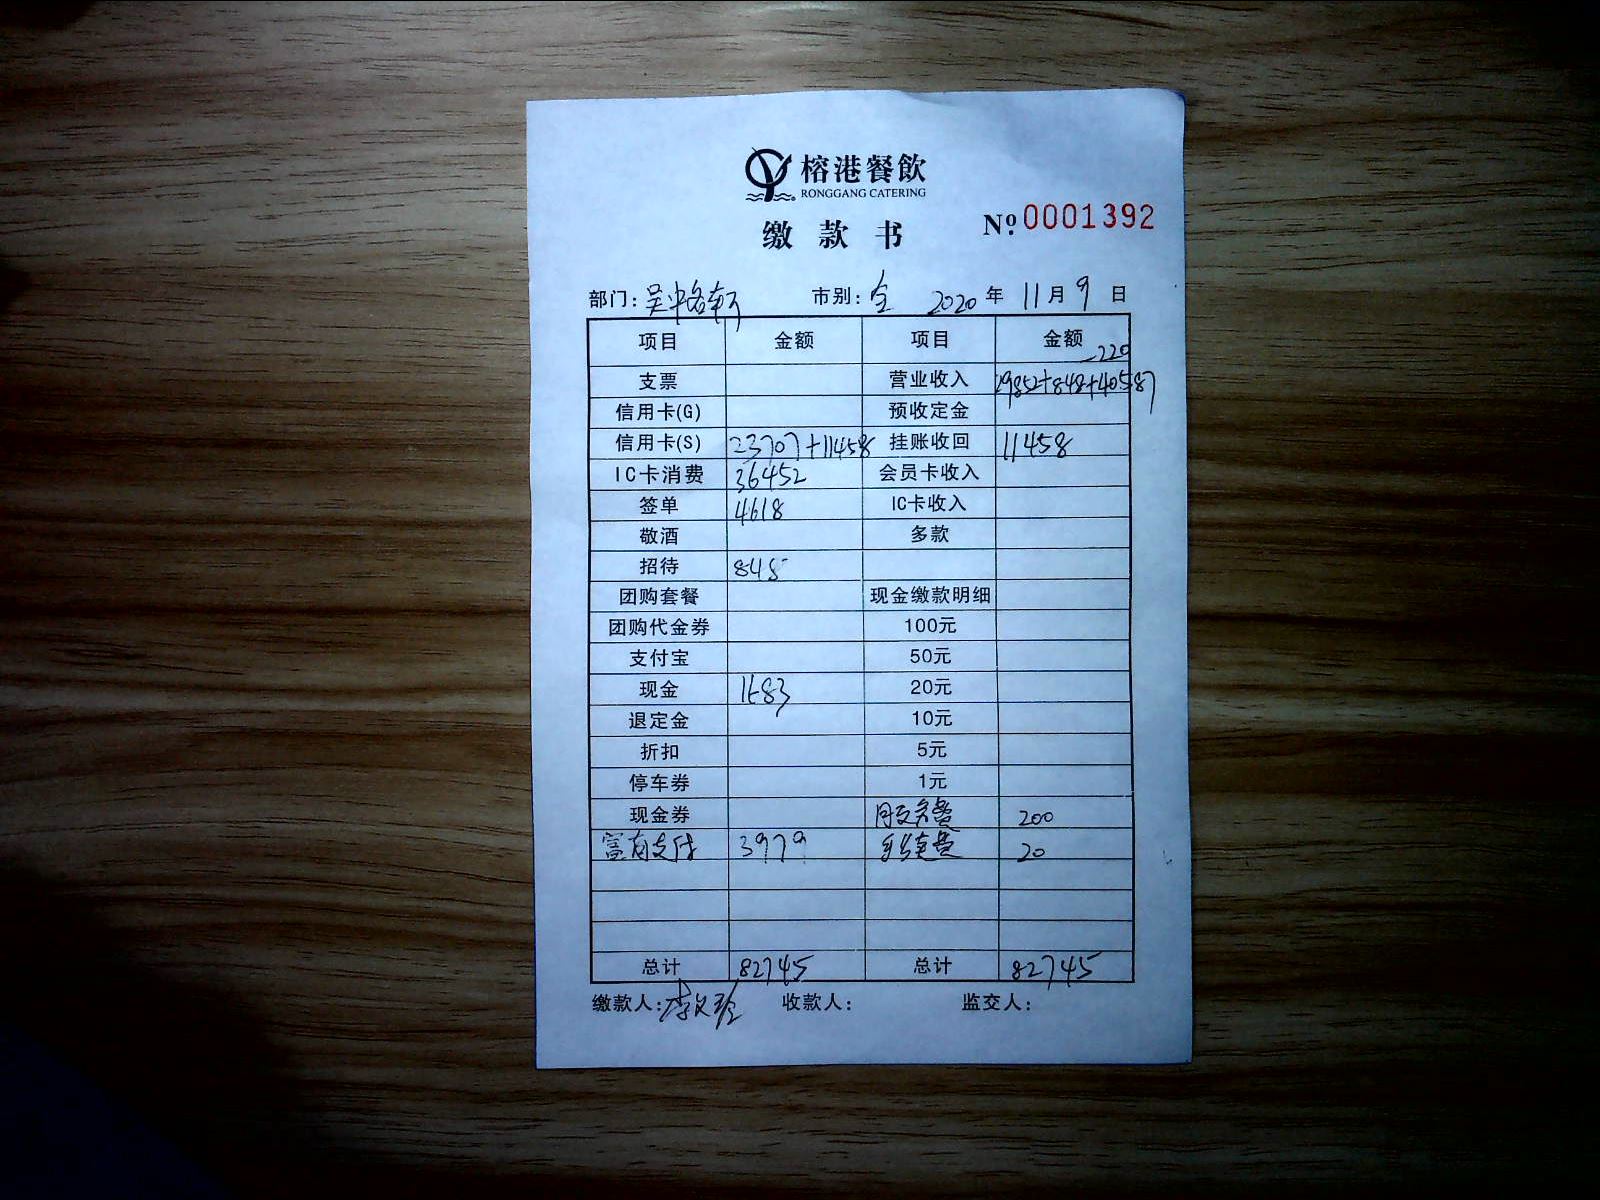 榕港餐飲
RONGGANG CATERING
缴款书
№ 0001392
部门: 吴中路 市别: 全 2020 年 11 月 9 日
项目 金额 项目 金额
-220
支票 营业收入 29852+848+40587
信用卡(G) 预收定金
信用卡(S) 23707+11458 挂账收回 11458
IC卡消费 36452 会员卡收入
签单 4618 IC卡收入
敬酒 多款
招待 848
团购套餐 现金缴款明细
团购代金券 100元
支付宝 50元
现金 1683 20元
退定金 10元
折扣 5元
停车券 1元
现金券 200
富有支付 3979 手续费 20
总计 82745 总计 82745
缴款人: 收款人: 监交人: